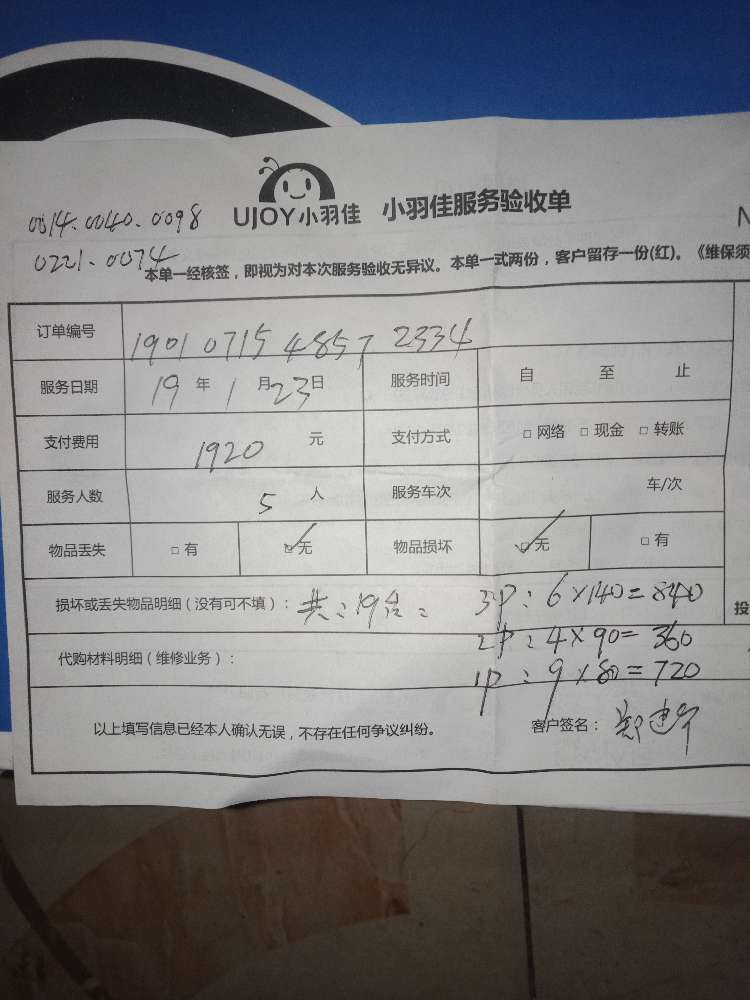 UJOY小羽佳 小羽佳服务验收单 N
0014、0040、0098
0221、0074
本单一经核签，即视为对本次服务验收无异议。本单一式两份，客户留存一份(红)。《维保须
订单编号 19010715 4857 2334
服务日期 19 年 1 月 23 日 服务时间 自 至 止
支付费用 1920 元 支付方式 □ 网络 □ 现金 □ 转账
服务人数 5 人 服务车次 车/次
物品丢失 □ 有 ☑ 无 物品损坏 ☑ 无 □ 有
损坏或丢失物品明细（没有可不填）： 共：19台： 3P：6×140=840
投
2P：4×90=360
代购材料明细（维修业务）：
1P：9×80=720
以上填写信息已经本人确认无误，不存在任何争议纠纷。 客户签名：